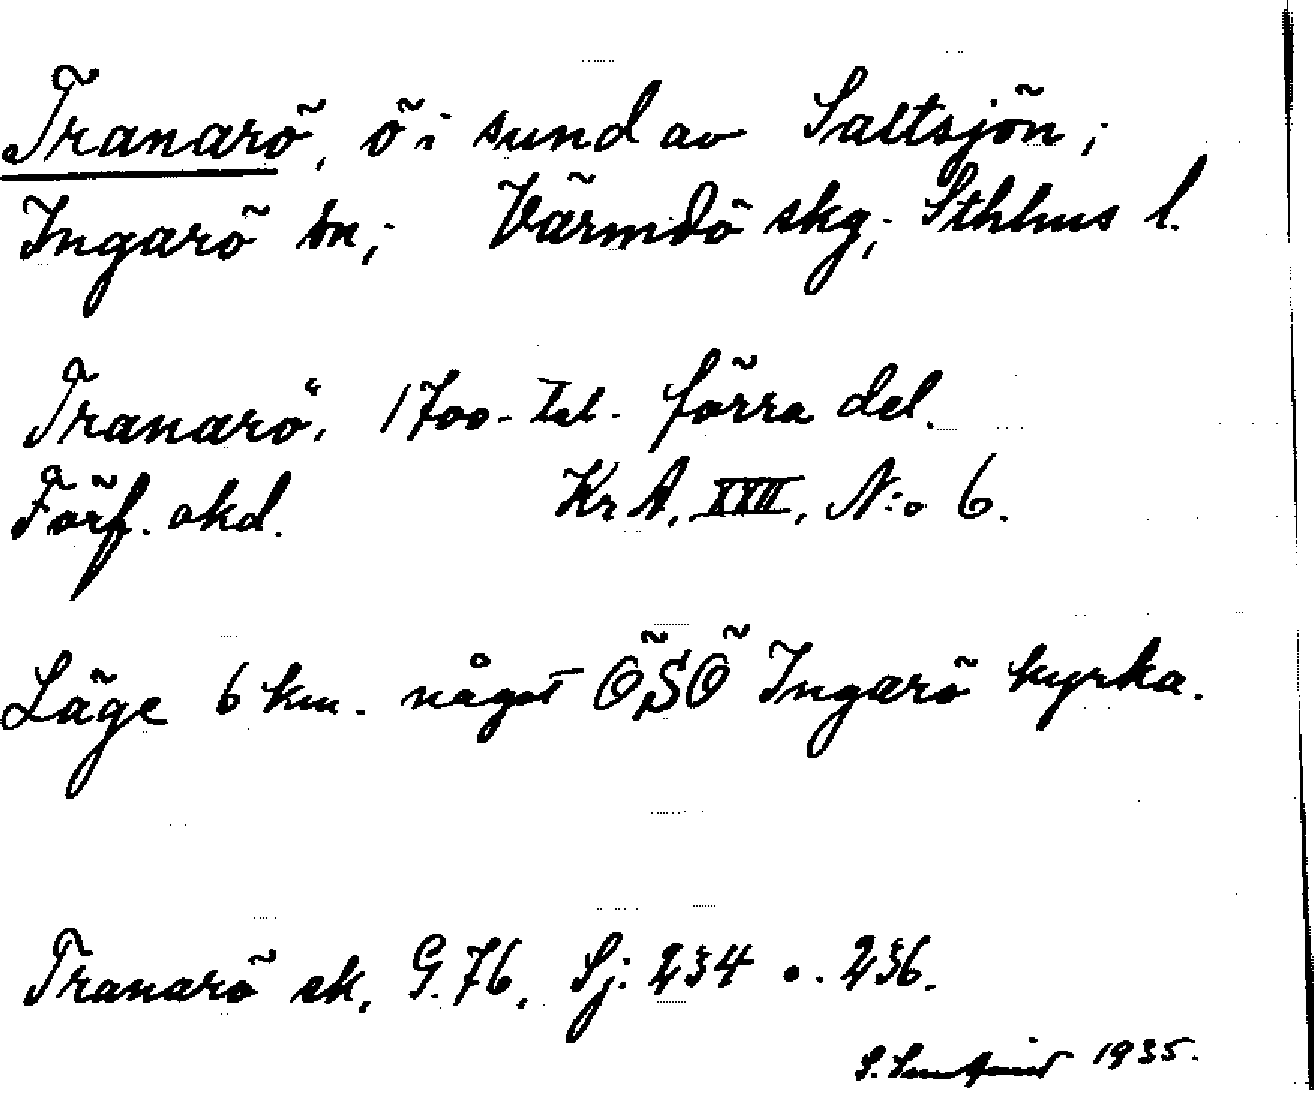 Tranarö, ö i sund av Saltsjön;
Ingarö sn; Värmdö skg; Sthlms l.
Tranarö, 1700-tal. förra del.
Förf. okd. KrA, XXII, N:o 6.
Läge 6 km. något ÖSÖ Ingarö kyrka.
Tranarö sk, G. 76, Sj. 234 o. 236.
S. 1935.